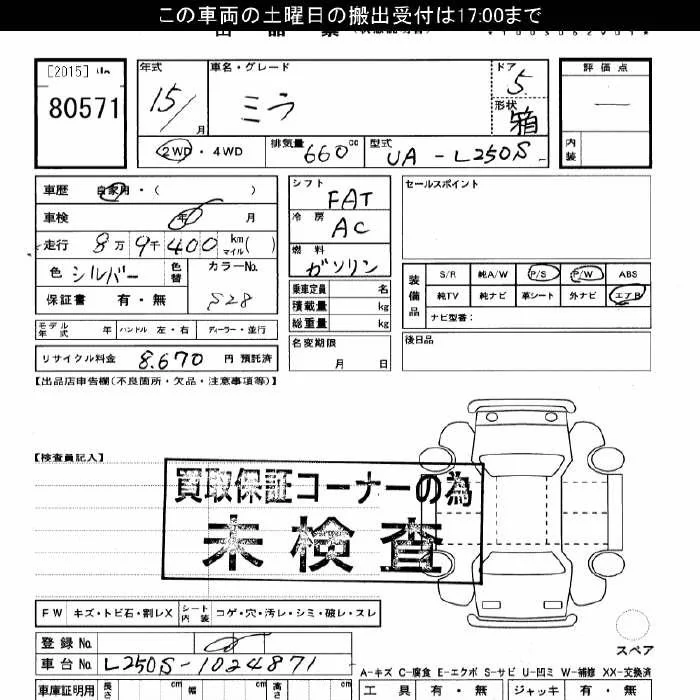 この車両の土曜日の搬出受付は17:00まで
[2015]
80571
年式 車名・グレード ドア 評価点
15/ 月 ミラ 5
形状 箱
内装
2WD・4WD 排気量 660 cc 型式 UA-L250S
車歴 自家用・( )
車検 年 月
走行 8万9千400 km マイル( )
色 シルバー 色替 カラーNo. S28
保証書 有・無
モデル年式 年 ハンドル 左・右 ディーラー・並行
リサイクル料金 8.670 円 預託済
シフト FAT
冷房 AC
燃料 ガソリン
乗車定員 名
積載量 kg
総重量 kg
名変期限
月 日
セールスポイント
装備品 S/R 純A/W P/S P/W ABS
純TV 純ナビ 革シート 外ナビ エアB
ナビ型番:
後日品
【出品店申告欄(不良箇所・欠品・注意事項等)】
【検査員記入】
買取保証コーナーの為
未検査
FW キズ・トビ石・割レX シート内装 コゲ・穴・汚レ・シミ・破レ・スレ
登録No.
車台No. L250S-1024871
スペア
A-キズ C-腐食 E-エクボ S-サビ U-凹ミ W-補修 XX-交換済
車庫証明用 長さ cm 幅 cm 高さ cm 工具 有・無 ジャッキ 有・無